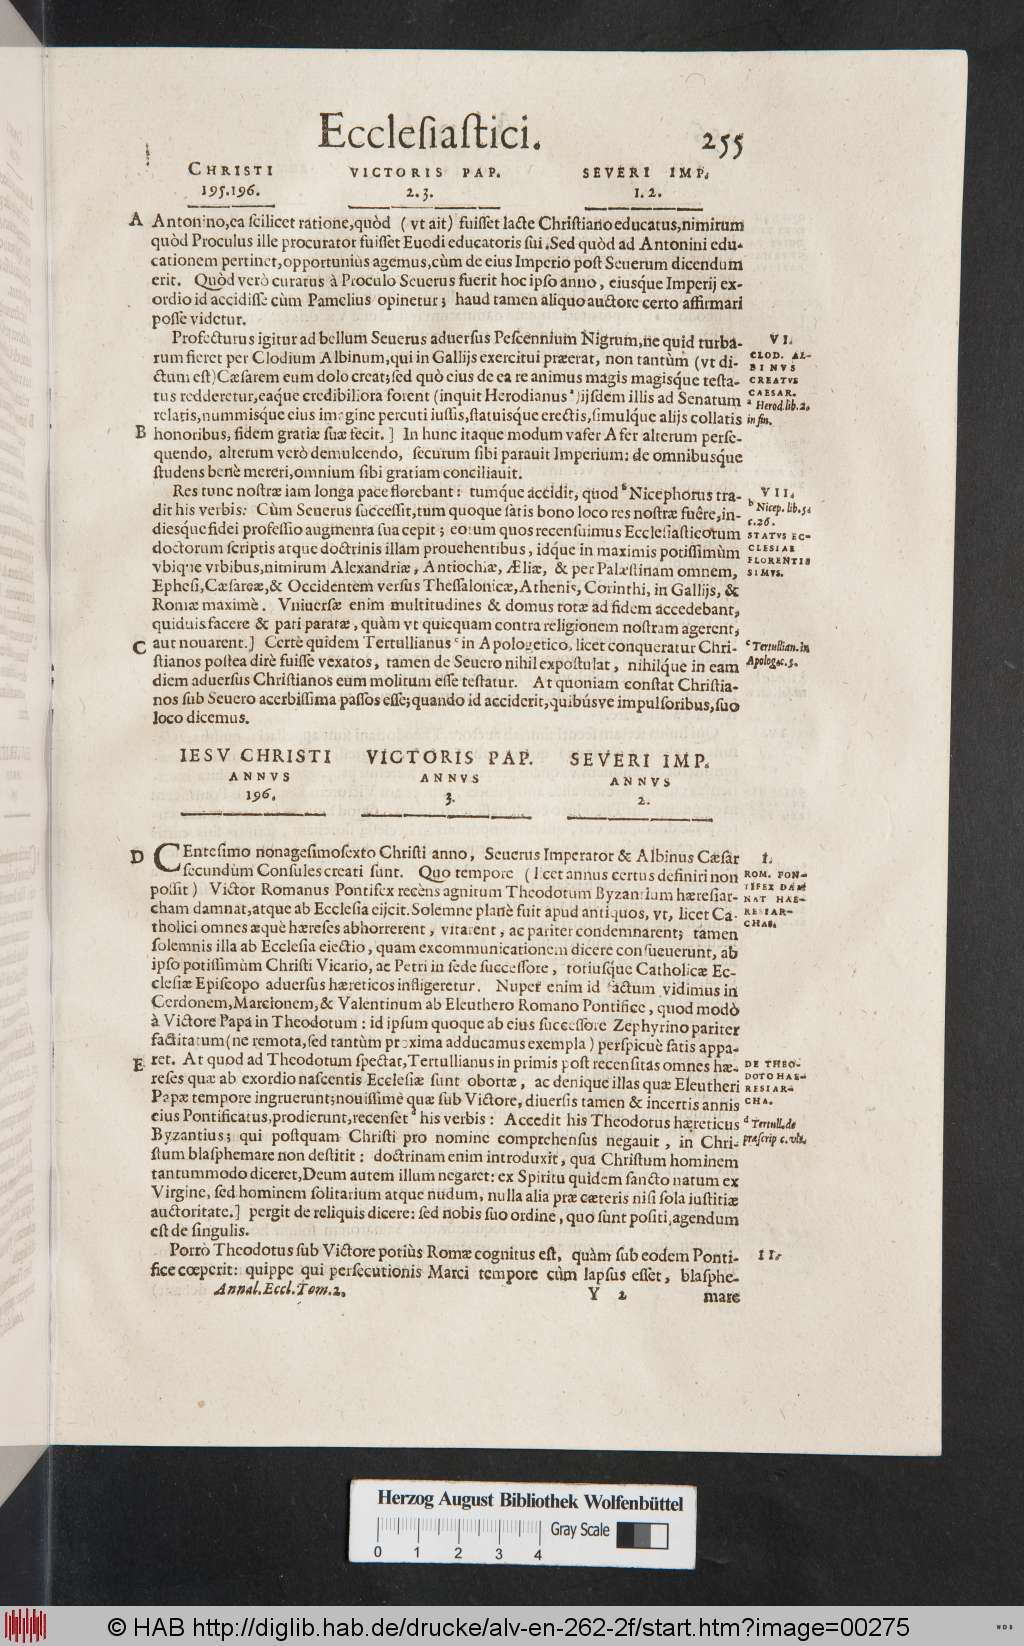 Eccleſiaſtici. 255
CHRISTI VICTORIS PAP. SEVERI IMP.
195.196. 2.3. 1.2.
A Antonino, ea ſcilicet ratione, quòd (vt ait) fuiſſet lacte Chriſtiano educatus, nimirum
quòd Proculus ille procurator fuiſſet Euodi educatoris ſui. Sed quòd ad Antonini edu-
cationem pertinet, opportuniùs agemus, cùm de eius Imperio poſt Seuerum dicendum
erit. Quòd verò curatus à Proculo Seuerus fuerit hoc ipſo anno, eiuſque Imperij ex-
ordio id accidiſſe cùm Pamelius opinetur; haud tamen aliquo auctore certo affirmari
poſſe videtur.
Profecturus igitur ad bellum Seuerus aduerſus Peſcennium Nigrum, ne quid turba-
rum fieret per Clodium Albinum, qui in Gallijs exercitui præerat, non tantùm (vt di-
ctum eſt) Cæſarem eum dolo creat; ſed quò eius de ea re animus magis magiſq́ue teſta-
tus redderetur, eaque credibiliora forent (inquit Herodianus ª) ijſdem illis ad Senatum
relatis, nummiſque eius imagine percuti iuſſis, ſtatuiſque erectis, ſimulq́ue alijs collatis
B honoribus, fidem gratiæ ſuæ fecit.] In hunc itaque modum vafer Afer alterum perſe-
quendo, alterum verò demulcendo, ſecurum ſibi parauit Imperium: de omnibuſq́ue
ſtudens benè mereri, omnium ſibi gratiam conciliauit.
VI.
CLOD. AL-
BINVS
CREATVS
CAESAR.
ª Herod. lib. 2.
in fin.
Res tunc noſtræ iam longa pace florebant: tumq́ue accidit, quod ᵇ Nicephorus tra-
dit his verbis: Cùm Seuerus ſucceſſit, tum quoque ſatis bono loco res noſtræ fuêre, in-
dieſq́ue fidei profeſſio augmenta ſua cepit; eorum quos recenſuimus Eccleſiaſticorum
doctorum ſcriptis atque doctrinis illam prouehentibus, idq́ue in maximis potiſſimùm
vbique vrbibus, nimirum Alexandriæ, Antiochiæ, Æliæ, & per Palæſtinam omnem,
Epheſi, Cæſareæ, & Occidentem verſus Theſſalonicæ, Athenis, Corinthi, in Gallijs, &
Romæ maximè. Vniuerſæ enim multitudines & domus totæ ad fidem accedebant,
quiduis facere & pati paratæ, quàm vt quicquam contra religionem noſtram agerent,
C aut nouarent.] Certè quidem Tertullianus ᶜ in Apologetico, licet conqueratur Chri-
ſtianos poſtea dirè fuiſſe vexatos, tamen de Seuero nihil expoſtulat, nihilq́ue in eam
diem aduerſus Chriſtianos eum molitum eſſe teſtatur. At quoniam conſtat Chriſtia-
nos ſub Seuero acerbiſſima paſſos eſſe; quando id acciderit, quibúſve impulſoribus, ſuo
loco dicemus.
VII.
ᵇ Nicep. lib. 5.
c. 26.
STATVS EC-
CLESIAE
FLORENTIS
SIMVS.
ᶜ Tertullian. in
Apologac. 5.
IESV CHRISTI VICTORIS PAP. SEVERI IMP.
ANNVS ANNVS ANNVS
196. 3. 2.
D CEnteſimo nonageſimoſexto Chriſti anno, Seuerus Imperator & Albinus Cæſar
ſecundùm Conſules creati ſunt. Quo tempore (licet annus certus definiri non
poſſit) Victor Romanus Pontifex recèns agnitum Theodotum Byzantium hæreſiar-
cham damnat, atque ab Eccleſia eijcit. Solemne planè fuit apud antiquos, vt, licet Ca-
tholici omnes æquè hæreſes abhorrerent, vitarent, ac pariter condemnarent; tamen
ſolemnis illa ab Eccleſia eiectio, quam excommunicationem dicere conſueuerunt, ab
ipſo potiſſimùm Chriſti Vicario, ac Petri in ſede ſucceſſore, totiuſq́ue Catholicæ Ec-
cleſiæ Epiſcopo aduerſus hæreticos infligeretur. Nuper enim id factum vidimus in
Cerdonem, Marcionem, & Valentinum ab Eleuthero Romano Pontifice, quod modò
à Victore Papa in Theodotum: id ipſum quoque ab eius ſucceſſore Zephyrino pariter
factitatum (ne remota, ſed tantùm proxima adducamus exempla) perſpicuè ſatis appa-
E ret. At quod ad Theodotum ſpectat, Tertullianus in primis poſt recenſitas omnes hæ-
reſes quæ ab exordio naſcentis Eccleſiæ ſunt obortæ, ac denique illas quæ Eleutheri
Papæ tempore ingruerunt; nouiſſimè quæ ſub Victore, diuerſis tamen & incertis annis
eius Pontificatus, prodierunt, recenſet ᵈ his verbis: Accedit his Theodotus hæreticus
Byzantius; qui poſtquam Chriſti pro nomine comprehenſus negauit, in Chri-
ſtum blaſphemare non deſtitit: doctrinam enim introduxit, qua Chriſtum hominem
tantummodo diceret, Deum autem illum negaret: ex Spiritu quidem ſancto natum ex
Virgine, ſed hominem ſolitarium atque nudum, nulla alia præ cæteris niſi ſola iuſtitiæ
auctoritate.] pergit de reliquis dicere: ſed nobis ſuo ordine, quo ſunt poſiti, agendum
eſt de ſingulis.
I.
ROM. PON-
TIFEX DAM
NAT HAE-
RESIAR-
CHAS.
DE THEO-
DOTO HAE-
RESIAR-
CHA.
ᵈ Tertull. de
præſcrip c. vlt.
Porrò Theodotus ſub Victore potiùs Romæ cognitus eſt, quàm ſub eodem Ponti- II.
fice cœperit: quippe qui perſecutionis Marci tempore cùm lapſus eſſet, blaſphe-
Annal. Eccl. Tom. 2. Y 2 mare
Herzog August Bibliothek Wolfenbüttel
Gray Scale
0 1 2 3 4
© HAB http://diglib.hab.de/drucke/alv-en-262-2f/start.htm?image=00275